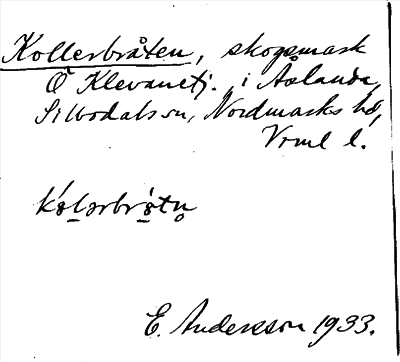 Kollerbråten, skogsmark
Ö Klevanetj. i Åslanda,
Silbodals sn, Nordmarks hd,
Vrml l.
kólərbrò̱tn̥
E. Andersson 1933.